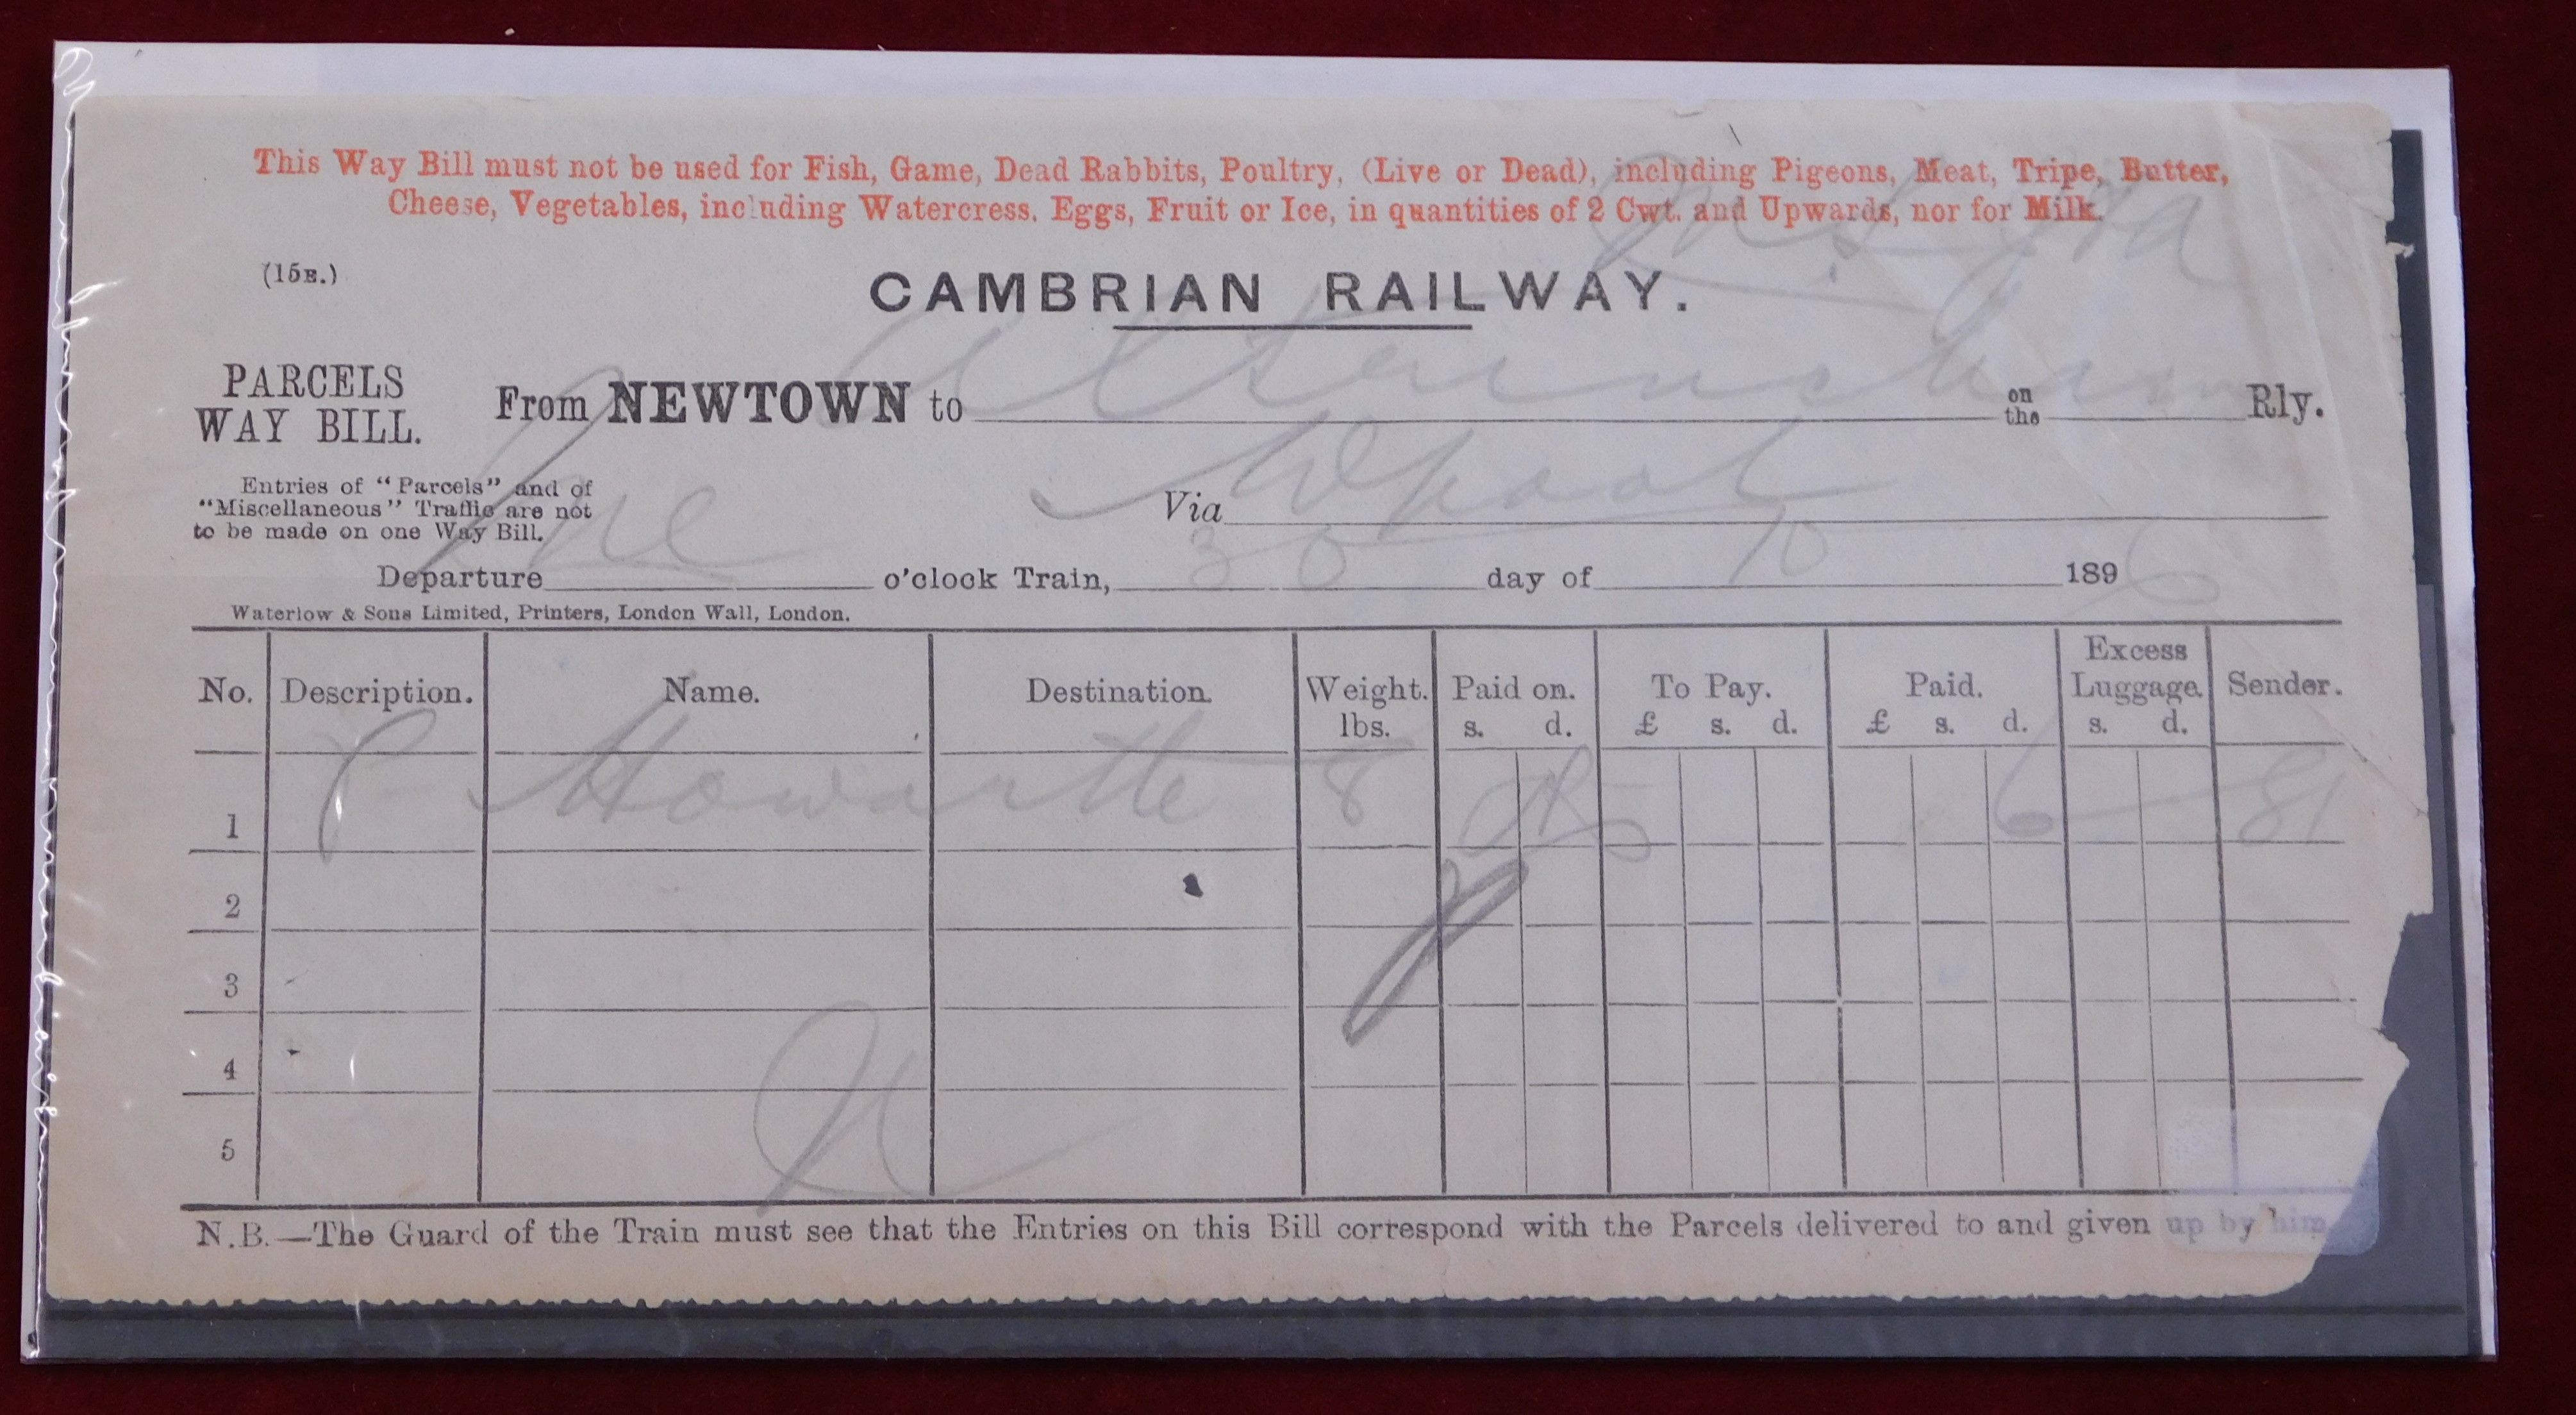 This Way Bill must not be used for Fish, Game, Dead Rabbits, Poultry, (Live or Dead), including Pigeons, Meat, Tripe, Butter,
Cheese, Vegetables, including Watercress. Eggs, Fruit or Ice, in quantities of 2 Cwt. and Upwards, nor for Milk.
(15E.)
CAMBRIAN RAILWAY.
PARCELS
WAY BILL.
From NEWTOWN to Altrincham on the Rly.
Entries of "Parcels" and of
"Miscellaneous" Traffic are not
to be made on one Way Bill.
Via Wpool
Departure o'clock Train, 30 day of 10 1896
Waterlow & Sons Limited, Printers, London Wall, London.
No. Description. Name. Destination. Weight. lbs. Paid on. s. d. To Pay. £ s. d. Paid. £ s. d. Excess Luggage. s. d. Sender.
1 P Howarth 8 6 81
2
3
4
5
N.B.—The Guard of the Train must see that the Entries on this Bill correspond with the Parcels delivered to and given up by him